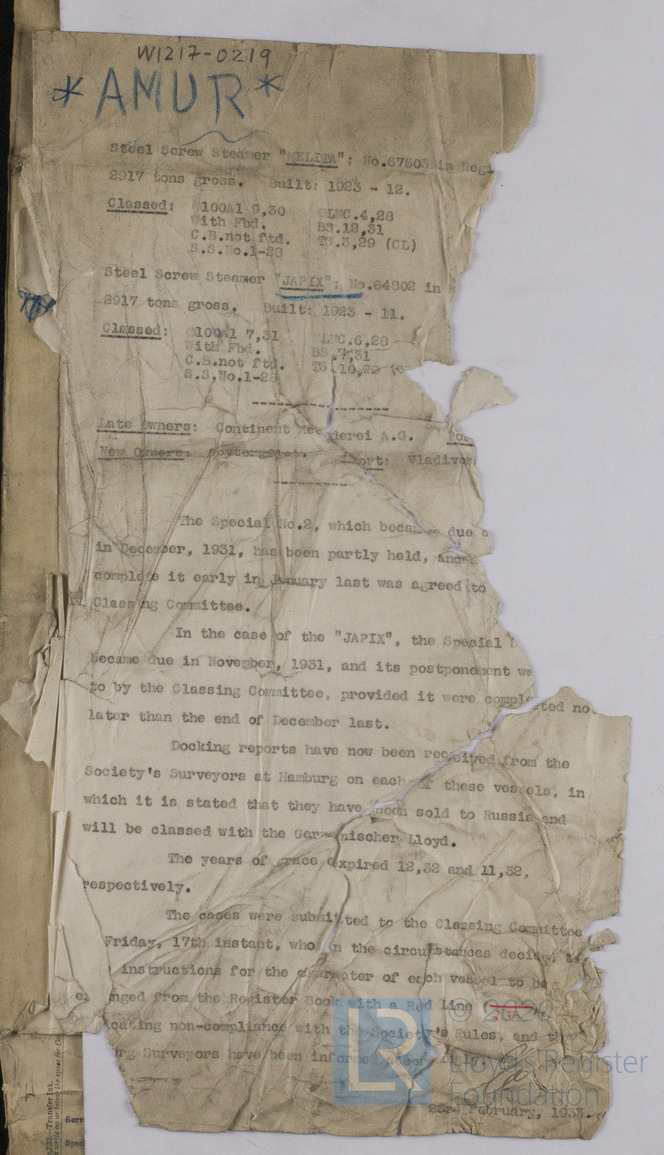 W1217-0219
*AMUR*
Steel Screw Steamer "MELITA"; No.67503 in Reg
2917 tons gross. Built: 1923 - 12.
Classed: 100A1 9,30 LMC.4,28
With Fbd. BS.12,31
C.B.not ftd. TS.3,29 (CL)
S.S.No.1-28
Steel Screw Steamer "JAPIX"; No.64802 in
2917 tons gross. Built: 1923 - 11.
Classed: 100A1 7,31 LMC.6,28
With Fbd. BS.7,31
C.B.not ftd. TS.10,29
S.S.No.1-28
Late Owners: Continent Reederei A.G.
New Owners: Port: Vladivos
The Special No.2, which became due
in December, 1931, has been partly held, and
complete it early in January last was agreed to
Classing Committee.
In the case of the "JAPIX", the Special
became due in November, 1931, and its postponement we
to by the Classing Committee, provided it were completed no
later than the end of December last.
Docking reports have now been received from the
Society's Surveyors at Hamburg on each of these vessels, in
which it is stated that they have been sold to Russia and
will be classed with the Germanischer Lloyd.
The years of grace expired 12,32 and 11,32,
respectively.
The cases were submitted to the Classing Committee
Friday, 17th instant, who in the circumstances decided
instructions for the character of each vessel to be
expunged from the Register Book with a Red Line
indicating non-compliance with the Society's Rules, and
Surveyors have been informed
February, 1933.
© 2020
Lloyd's Register
Foundation
LR
Transfer Ink.
Surv
Speci